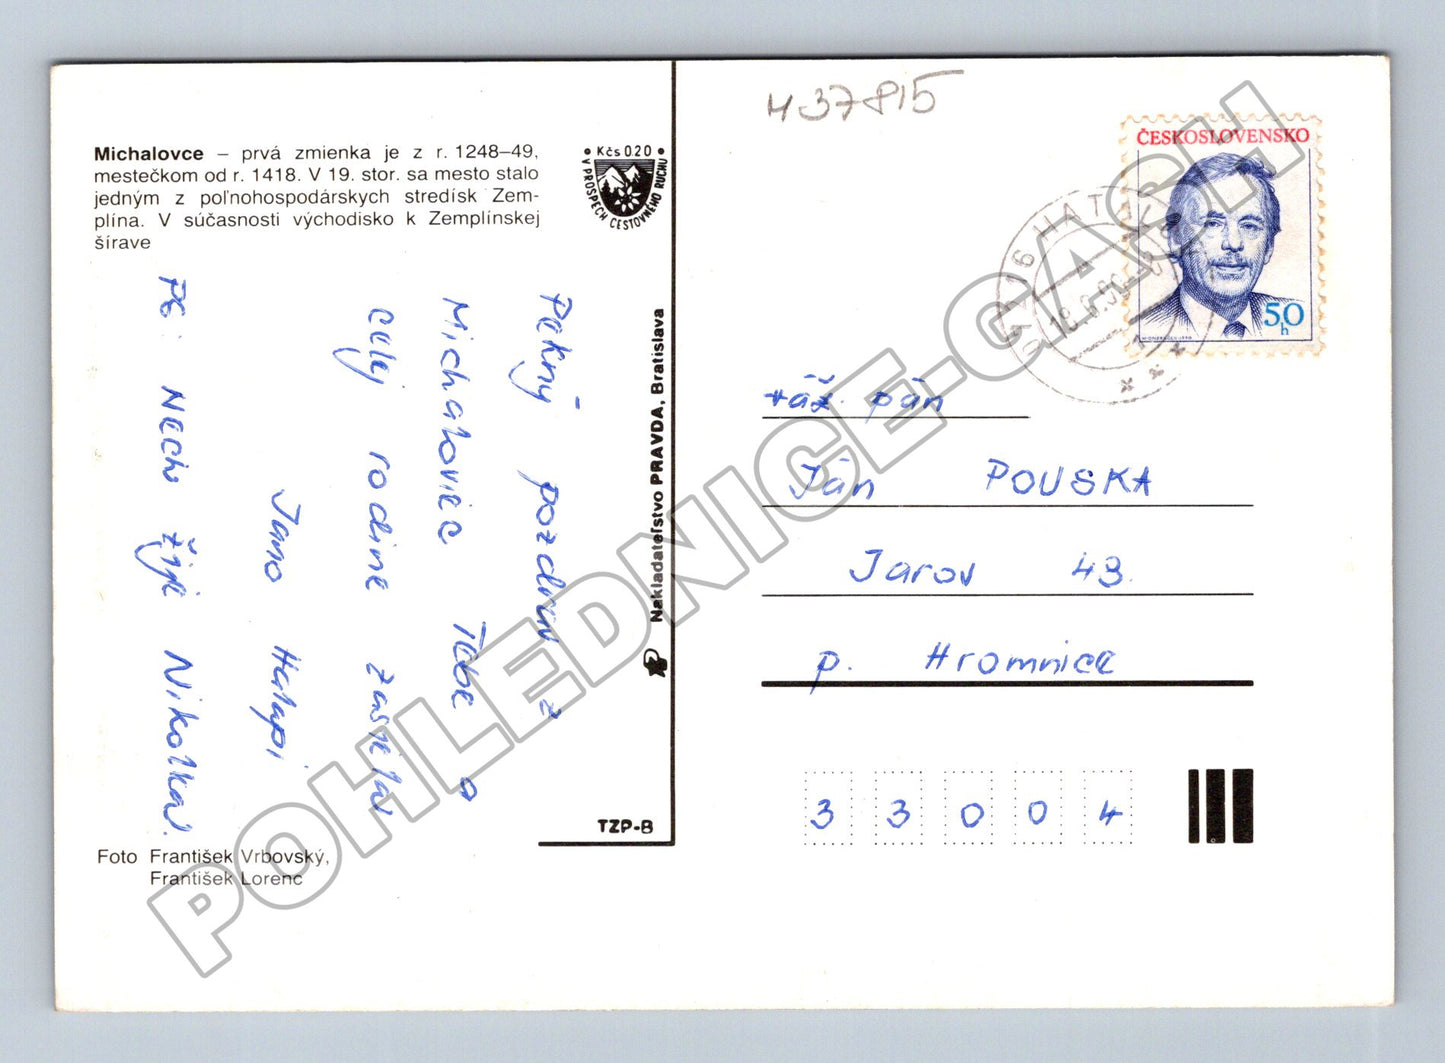 Michalovce – prvá zmienka je z r. 1248–49,
mestečkom od r. 1418. V 19. stor. sa mesto stalo
jedným z poľnohospodárskych stredísk Zem-
plína. V súčasnosti východisko k Zemplínskej
šírave
• Kčs 0.20 •
V PROSPECH CESTOVNÉHO RUCHU
Pekný pozdrav z
Michaloviec Tebe a
celej rodine zasiela
Jano Hatapi
PS: Nech žije Nikolka
Foto František Vrbovský,
František Lorenc
Nakladateľstvo PRAVDA, Bratislava
TZP-B
437815
ČESKOSLOVENSKO
50
h
váž. pán
Ján POUSKA
Jarov 43.
p. Hromnice
3 3 0 0 4
POHLEDNICE-CASH